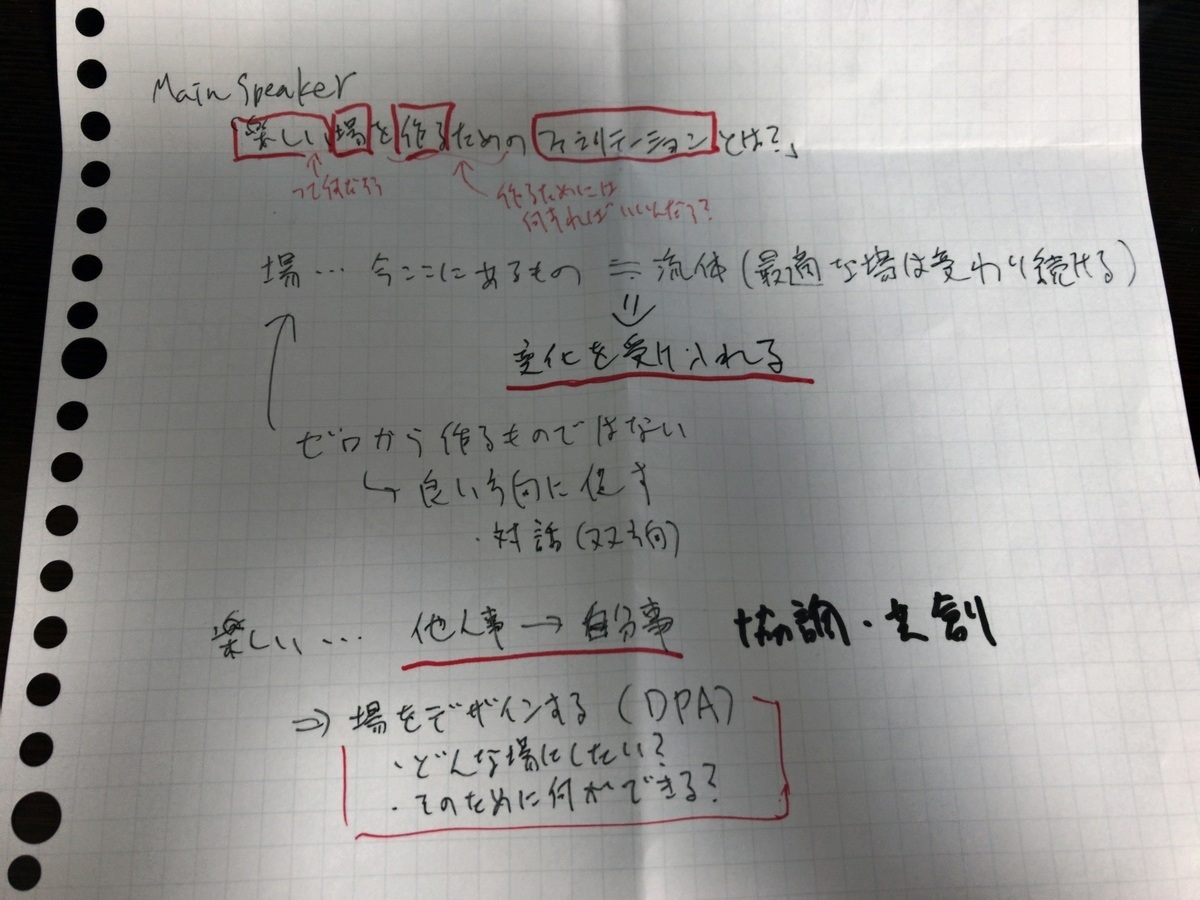 Main Speaker
楽しい場を作るためのファシリテーションとは?」
って何だろう
作るためには
何すればいいんだろ?
場… 今ここにあるもの ≒ 流体(最適な場は変わり続ける)
変化を受け入れる
ゼロから作るものではない
↳ 良い方向に促す
・対話(双方向)
楽しい… 他人事→自分事 協調・共創
⇒ 場をデザインする(DPA)
・どんな場にしたい?
・そのために何ができる?